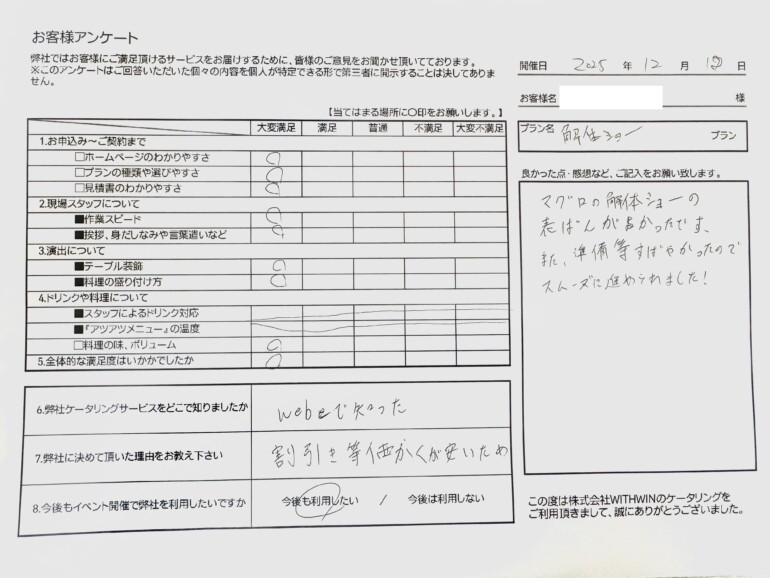 お客様アンケート
弊社ではお客様にご満足頂けるサービスをお届けするために、皆様のご意見をお聞かせ頂いております。
※このアンケートはご回答いただいた個々の内容を個人が特定できる形で第三者に開示することは決してありま
せん。
開催日 2025 年 12 月 日
お客様名 様
プラン名 解体ショー プラン
【当てはまる場所に〇印をお願いします。】
大変満足 満足 普通 不満足 大変不満足
1.お申込み～ご契約まで
□ホームページのわかりやすさ
□プランの種類や選びやすさ
□見積書のわかりやすさ
2.現場スタッフについて
■作業スピード
■挨拶、身だしなみや言葉遣いなど
3.演出について
■テーブル装飾
■料理の盛り付け方
4.ドリンクや料理について
■スタッフによるドリンク対応
■『アツアツメニュー』の温度
□料理の味、ボリューム
5.全体的な満足度はいかかでしたか
良かった点・感想など、ご記入をお願い致します。
マグロの解体ショーの
ばんが良かったです、
また、準備等すばやかったので
スムーズに進められました！
6.弊社ケータリングサービスをどこで知りましたか
webeで知った
7.弊社に決めて頂いた理由をお教え下さい
割引き等価かくが安いため
8.今後もイベント開催で弊社を利用したいですか
今後も利用したい / 今後は利用しない
この度は株式会社WITHWINのケータリングを
ご利用頂きまして、誠にありがとうございました。